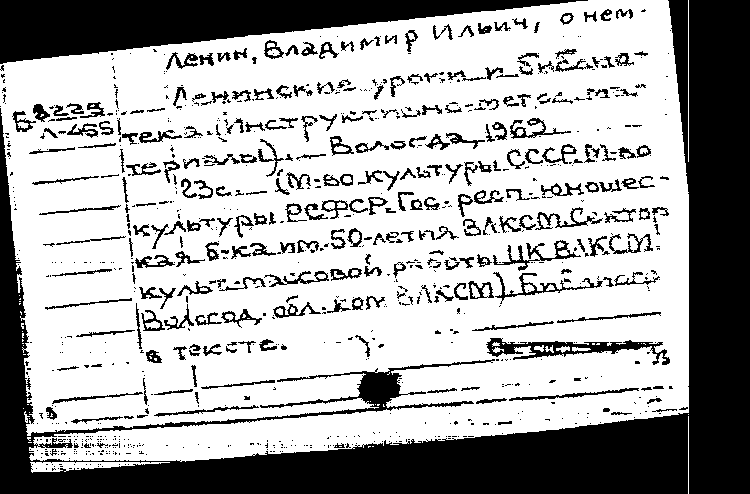 Ленин, Владимир Ильич, о нем.
Ленинские уроки и библио-
Б 8225
Л-465
тека. (Инструктивно-метод. ма-
териалы). Вологда, 1969.
23с. (М-во культуры СССР. М-во
культуры РСФСР. Гос. респ. юношес-
кая б-ка им. 50-летия ВЛКСМ. Сектор
культ.-массовой работы ЦК ВЛКСМ.
Вологод. обл. ком ВЛКСМ). Библиогр
в тексте.